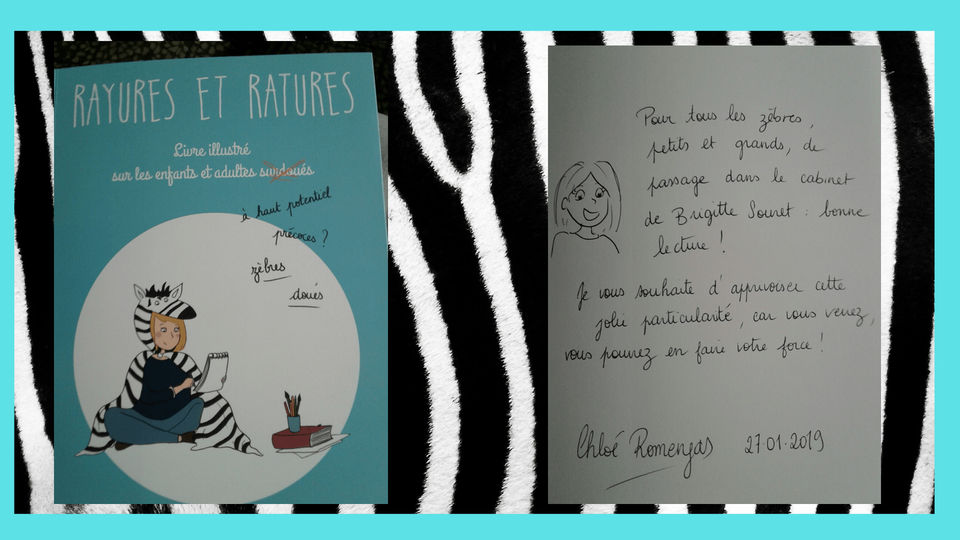 RAYURES ET RATURES
Livre illustré
sur les enfants et adultes surdoués
à haut potentiel
précoces ?
zèbres
doués
Pour tous les zèbres,
petits et grands, de
passage dans le cabinet
de Brigitte Souret : bonne
lecture !
Je vous souhaite d'apprivoiser cette
jolie particularité, car vous verrez,
vous pourrez en faire votre force !
Chloé Romengas 27.01.2019